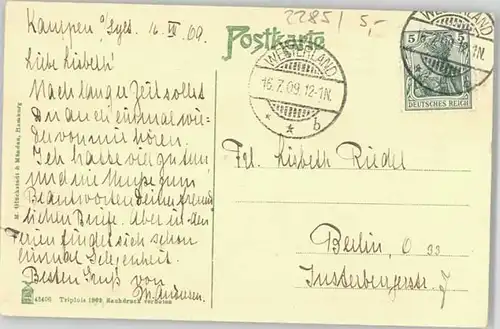 Kampen a/Sylt. 16.VII.09.
2285/ 5,-
Postkarte
Liebe Lisbeth!
Nach langer Zeit sollst
Du auch einmal wie-
der von mir hören.
Ich hatte viel zu tun,
und nie Muße zum
Beantworten Deiner freund-
lichen Briefe. Aber in den
Ferien findet sich schon
einmal Gelegenheit.
Besten Gruß von
M. Andresen.
WESTERLAND
15.7.09.12-1N.
* * b
WESTERLAND
5 5
DEUTSCHES REICH
Frl. Lisbeth Riedel
Berlin, O 33
Insterburgerstr.
M. Glückstadt & Münden, Hamburg
43400 Triplois 1909 Nachdruck verboten